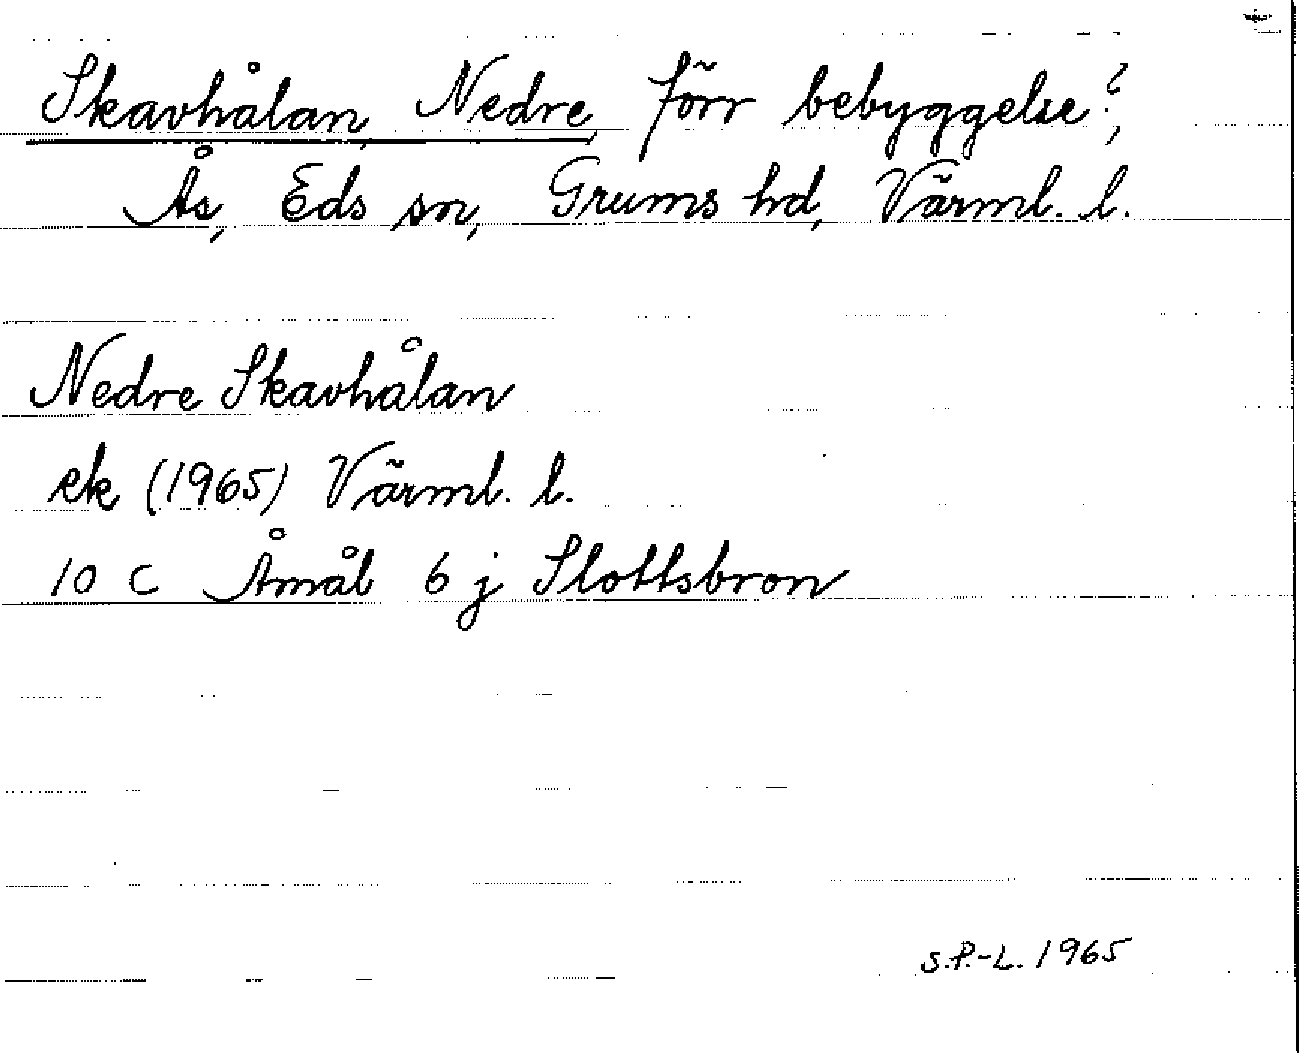 Skavhålan, Nedre, förr bebyggelse?,
Ås, Eds sn, Grums hd, Värml. l.
Nedre Skavhålan
ek (1965) Värml. l.
10 C Åmål 6 j Slottsbron
S.P.-L. 1965